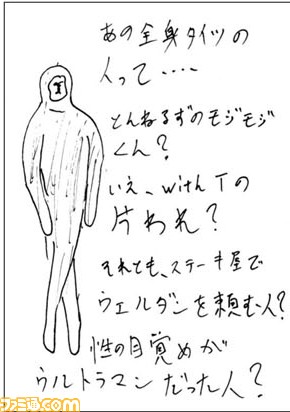 あの全身タイツの
人って‥‥
とんねるずのモジモジ
くん?
いえ、with Tの
片われ?
それとも、ステーキ屋で
ウェルダンを頼む人?
性の目覚めが
ウルトラマンだった人?
ファミ通.com